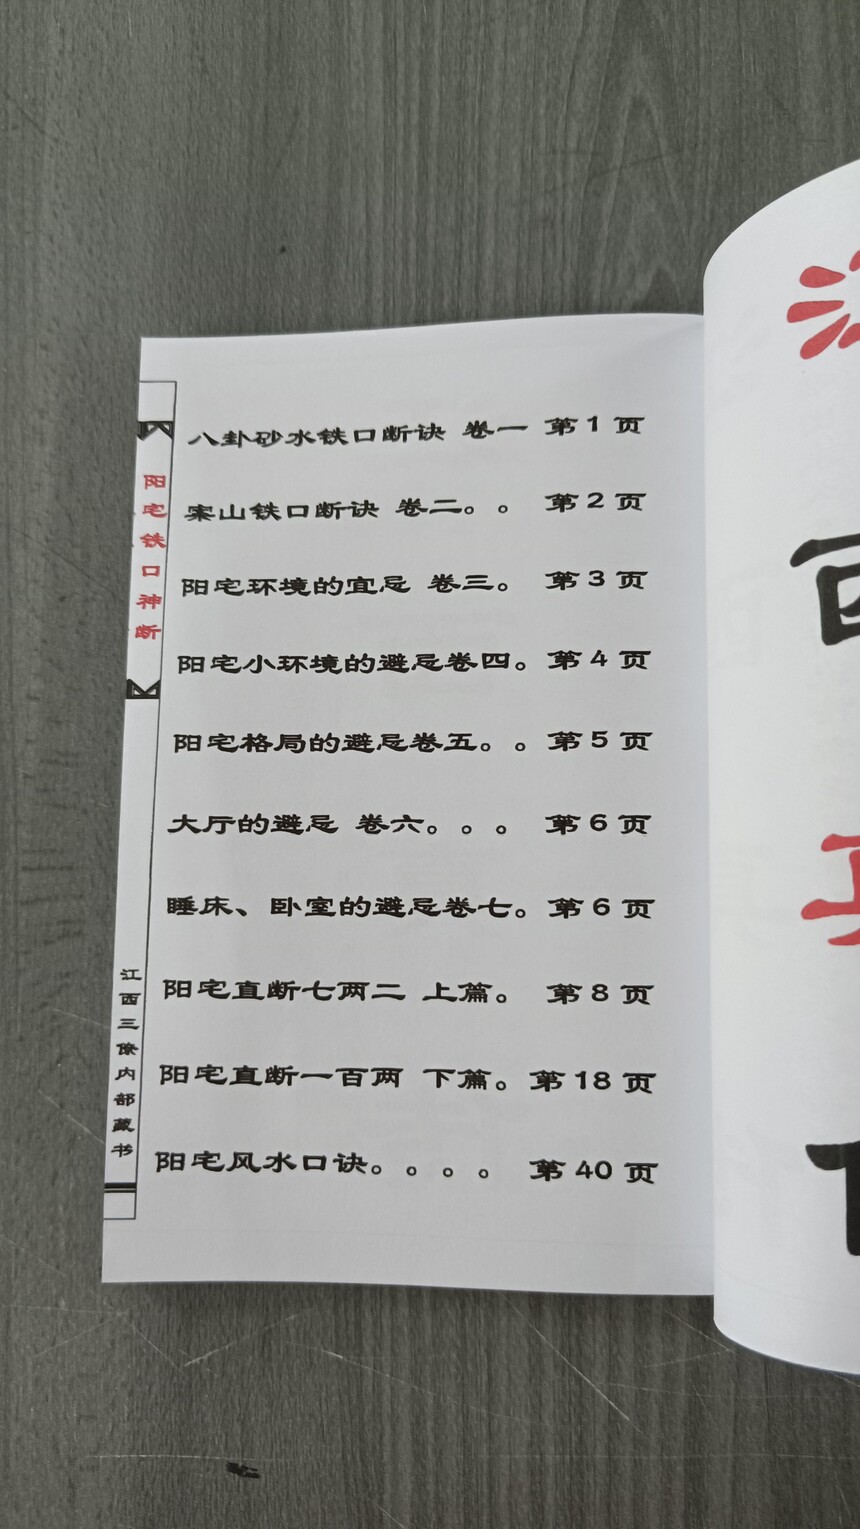 八卦砂水铁口断诀 卷一 第1页
案山铁口断诀 卷二。。 第2页
阳宅环境的宜忌 卷三。 第3页
阳宅小环境的避忌卷四。第4页
阳宅格局的避忌卷五。。第5页
大厅的避忌 卷六。。。 第6页
睡床、卧室的避忌卷七。第6页
阳宅直断七两二 上篇。 第8页
阳宅直断一百两 下篇。第18页
阳宅风水口诀。。。。 第40页
阳宅铁口神断
江西三僚内部藏书